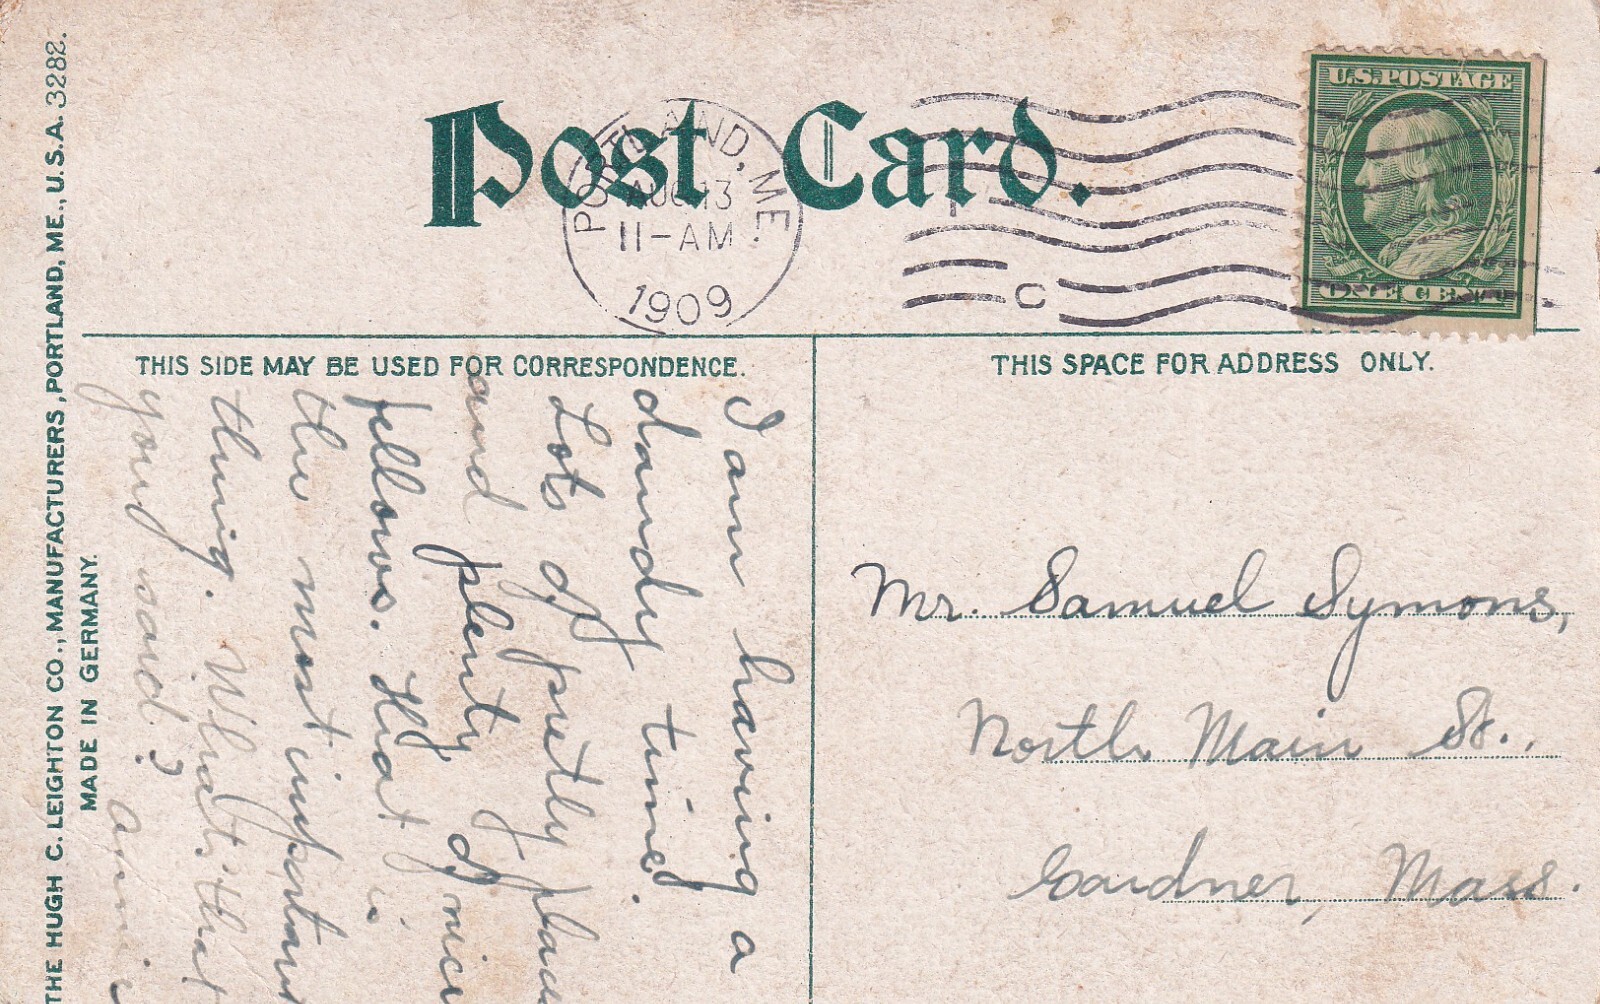 Post Card.
PORTLAND, ME.
AUG 13
11-AM
1909
C
U.S. POSTAGE
ONE CENT
THIS SIDE MAY BE USED FOR CORRESPONDENCE.
THIS SPACE FOR ADDRESS ONLY.
I am having a
dandy time.
Lots of pretty plac
and plenty of nice
fellows. That is
the most important
thing. What's that
you said? Annie
Mr. Samuel Symons,
North Main St.,
Gardner, Mass.
THE HUGH C. LEIGHTON CO., MANUFACTURERS, PORTLAND, ME., U.S.A. 3282.
MADE IN GERMANY.